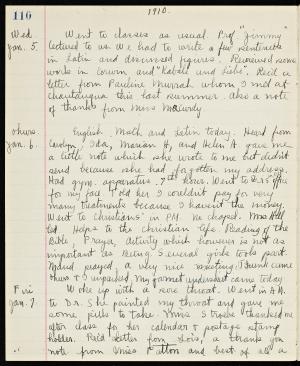 116
1910.
Wed Went to classes as usual. Prof "Jimmy"
Jan. 5. lectured to us we had to write a few sentences
in Latin and discussed figures. Received some
works in and "Kabale und Liebe". Rec'd a
letter from Pauline whom I met at
Chautauqua this last summer. Also a note
of thanks from Miss McCurdy
Thurs English Math and Latin today. Heard from
Jan. 6. Carolyn, Ida, Marian H, and Helen A gave me
a little note which she wrote to me but didn't
send because she had forgotten my address.
Had gym. apparatus. 7th hour. Went to Dr's office
for my foot I told her I couldn't pay for very
many treatments because I haven't the money.
Went to Christians' in PM. No chapel. Mrs Hill
led Helps to the Christian life. Reading of the
Bible, Prayer, Activity which however is not as
important as Being. Several girls took part.
Maud prayed, a very nice meeting.
I unpacked my came today
Fri Woke up with a sore throat. Went in A.M.
Jan. 7 to Dr. She painted my throat and gave me
some pills to take. Miss Strobe thanked me
after class for her calendar & postage stamp
holder. Rec'd letter from Lois, a thank you
note from Miss and best of all a